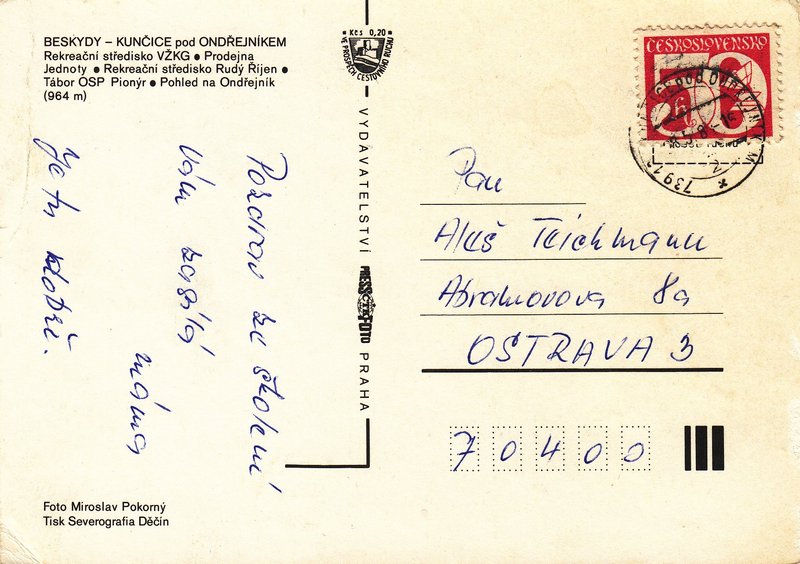 BESKYDY – KUNČICE pod ONDŘEJNÍKEM
Rekreační středisko VŽKG • Prodejna
Jednoty • Rekreační středisko Rudý Říjen •
Tábor OSP Pionýr • Pohled na Ondřejník
(964 m)
Kčs 0,20
VE PROSPĚCH CESTOVNÍHO RUCHU
ČESKOSLOVENSKO
VYDAVATELSTVÍ
PRESSFOTO
PRAHA
Pozdrav ze školení
Vám zasílá
máma
Je tu dobře.
Pan
Aleš Teichmann
Abramovova 8a
OSTRAVA 3
70400
Foto Miroslav Pokorný
Tisk Severografia Děčín